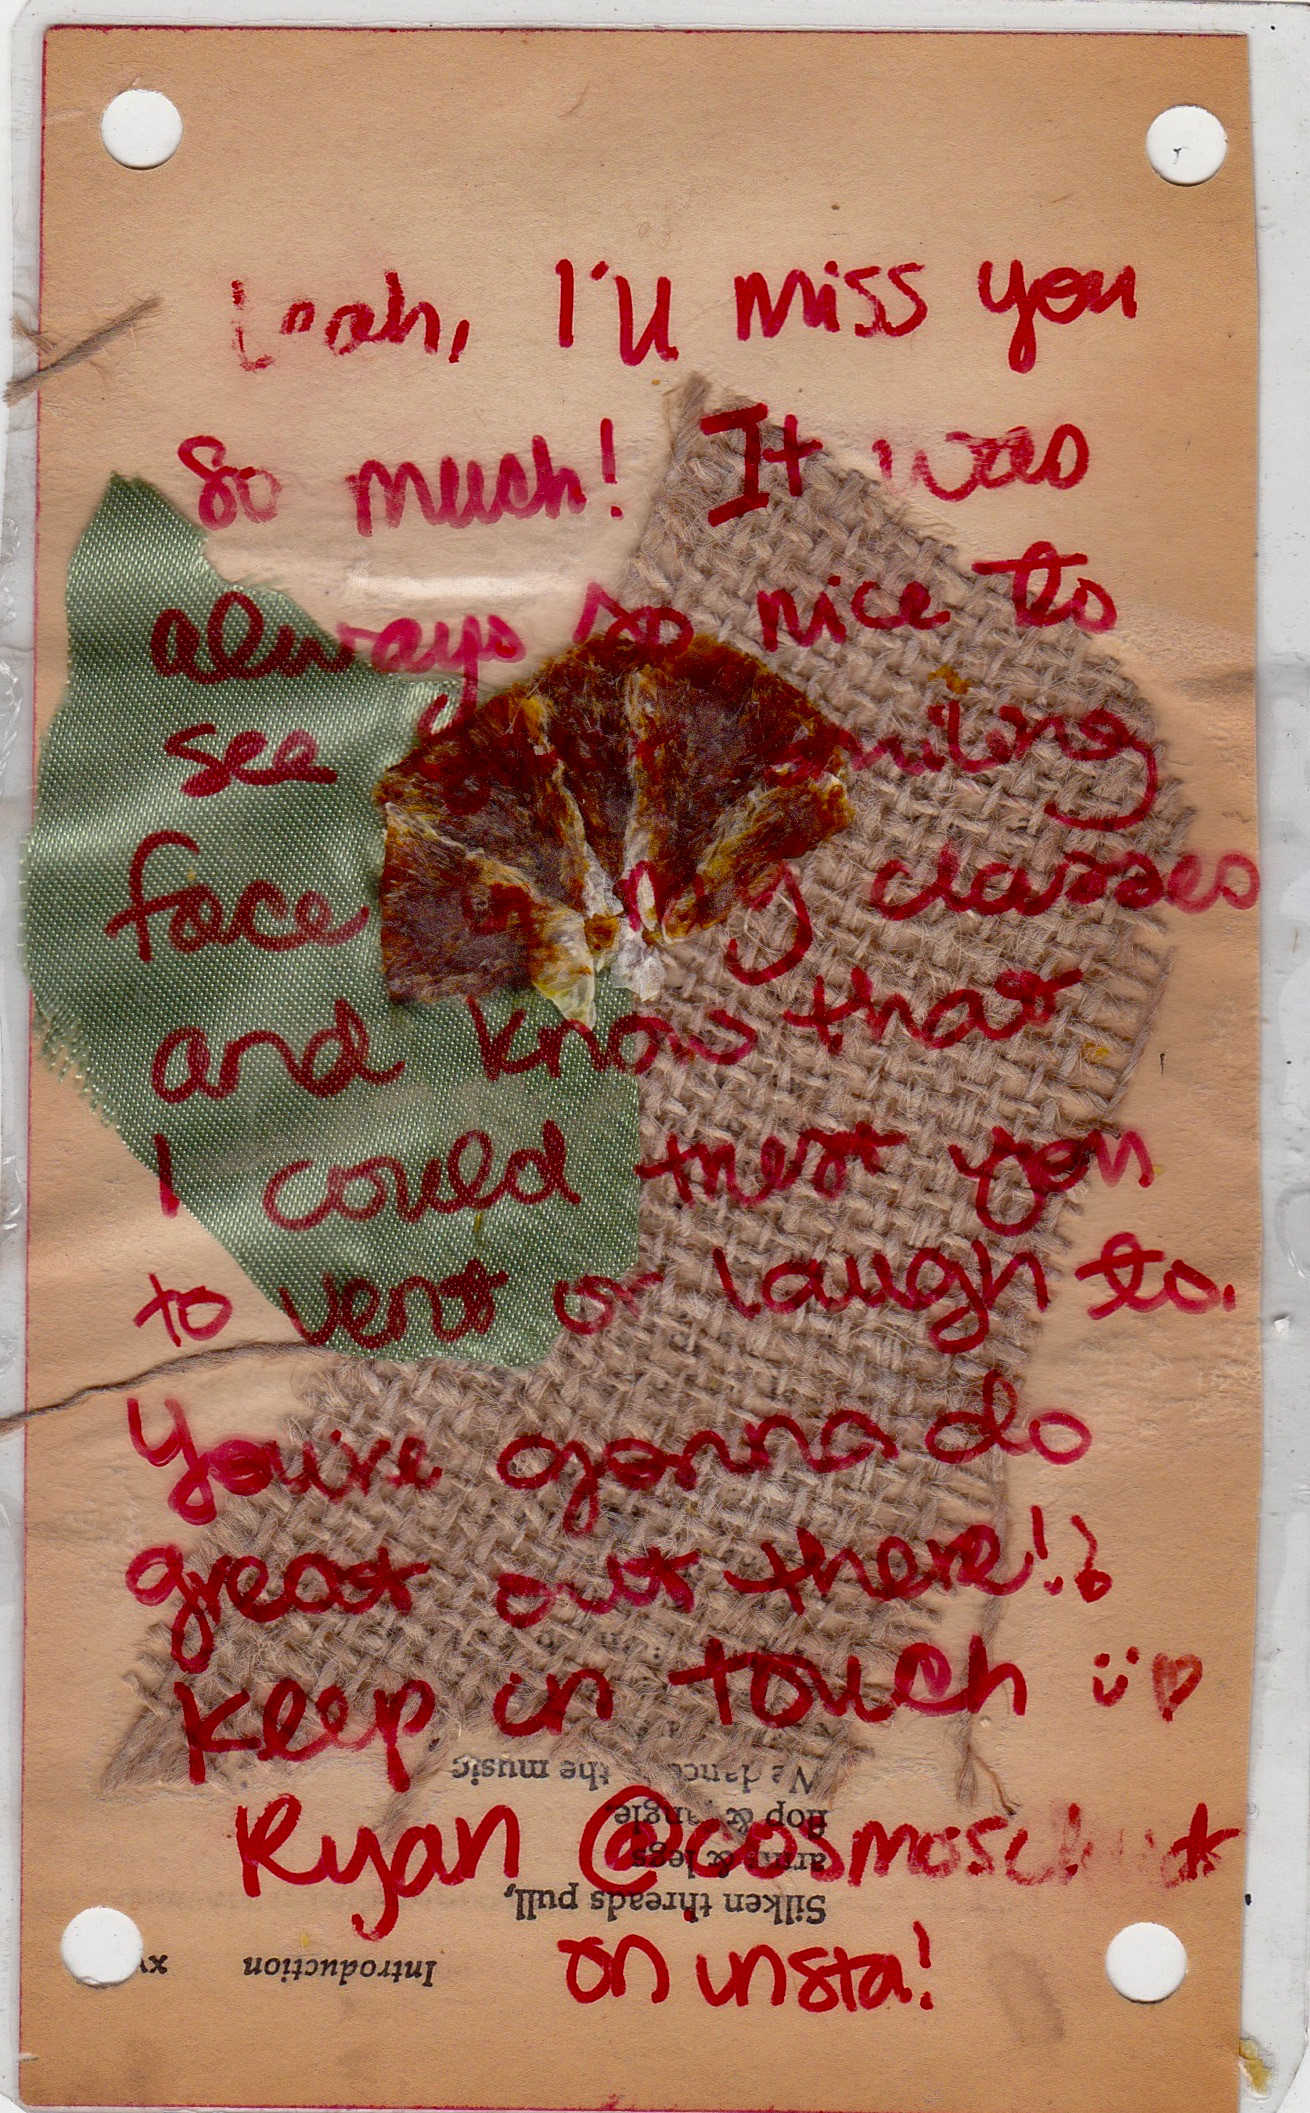 Leah, I'll miss you
so much! It was
always so nice to
see smiling
face my classes
and know that
I could trust you
to vent or laugh to.
You're gonna do
great out there!
keep in touch
Ryan
on insta!
We dance the music
flop &
arms & legs
Silken threads pull,
Introduction